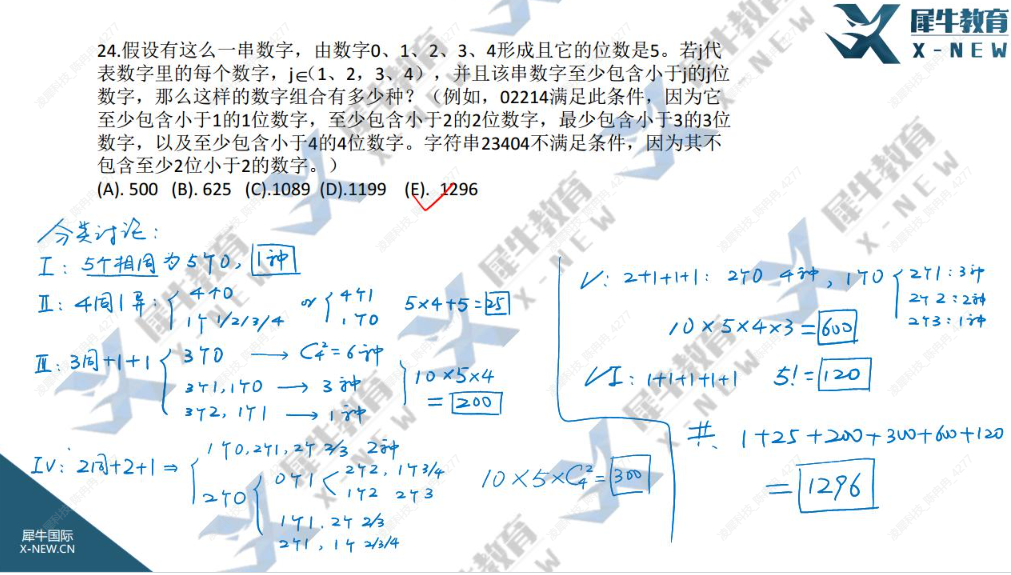 犀牛教育
X-NEW
24.假设有这么一串数字，由数字0、1、2、3、4形成且它的位数是5。若j代
表数字里的每个数字，j∈（1、2，3、4），并且该串数字至少包含小于j的j位
数字，那么这样的数字组合有多少种？（例如，02214满足此条件，因为它
至少包含小于1的1位数字，至少包含小于2的2位数字，最少包含小于3的3位
数字，以及至少包含小于4的4位数字。字符串23404不满足条件，因为其不
包含至少2位小于2的数字。）
(A). 500 (B). 625 (C).1089 (D).1199 (E). 1296
分类讨论：
I：5个相同为5个0，1种
II：4同1异：{ 4个0 or { 4个1 5×4+5=25
1个1/2/3/4 1个0
III：3同+1+1 { 3个0 → C₄²=6种
3个1,1个0 → 3种 10×5×4
3个2,1个1 → 1种 =200
IV：2同+2+1 ⇒ { 1个0,2个1,2个2/3 2种
2个0 { 0个1 < 2个2,1个3/4
1个2 2个3
1个1.2个2/3
2个1,1个2/3/4
10×5×C₄²=300
V：2+1+1+1：2个0 4种，1个0 { 2个1:3种
2个2:2种
2个3:1种
10×5×4×3=600
VI：1+1+1+1+1 5!=120
共 1+25+200+300+600+120
=1296
犀牛国际
X-NEW.CN